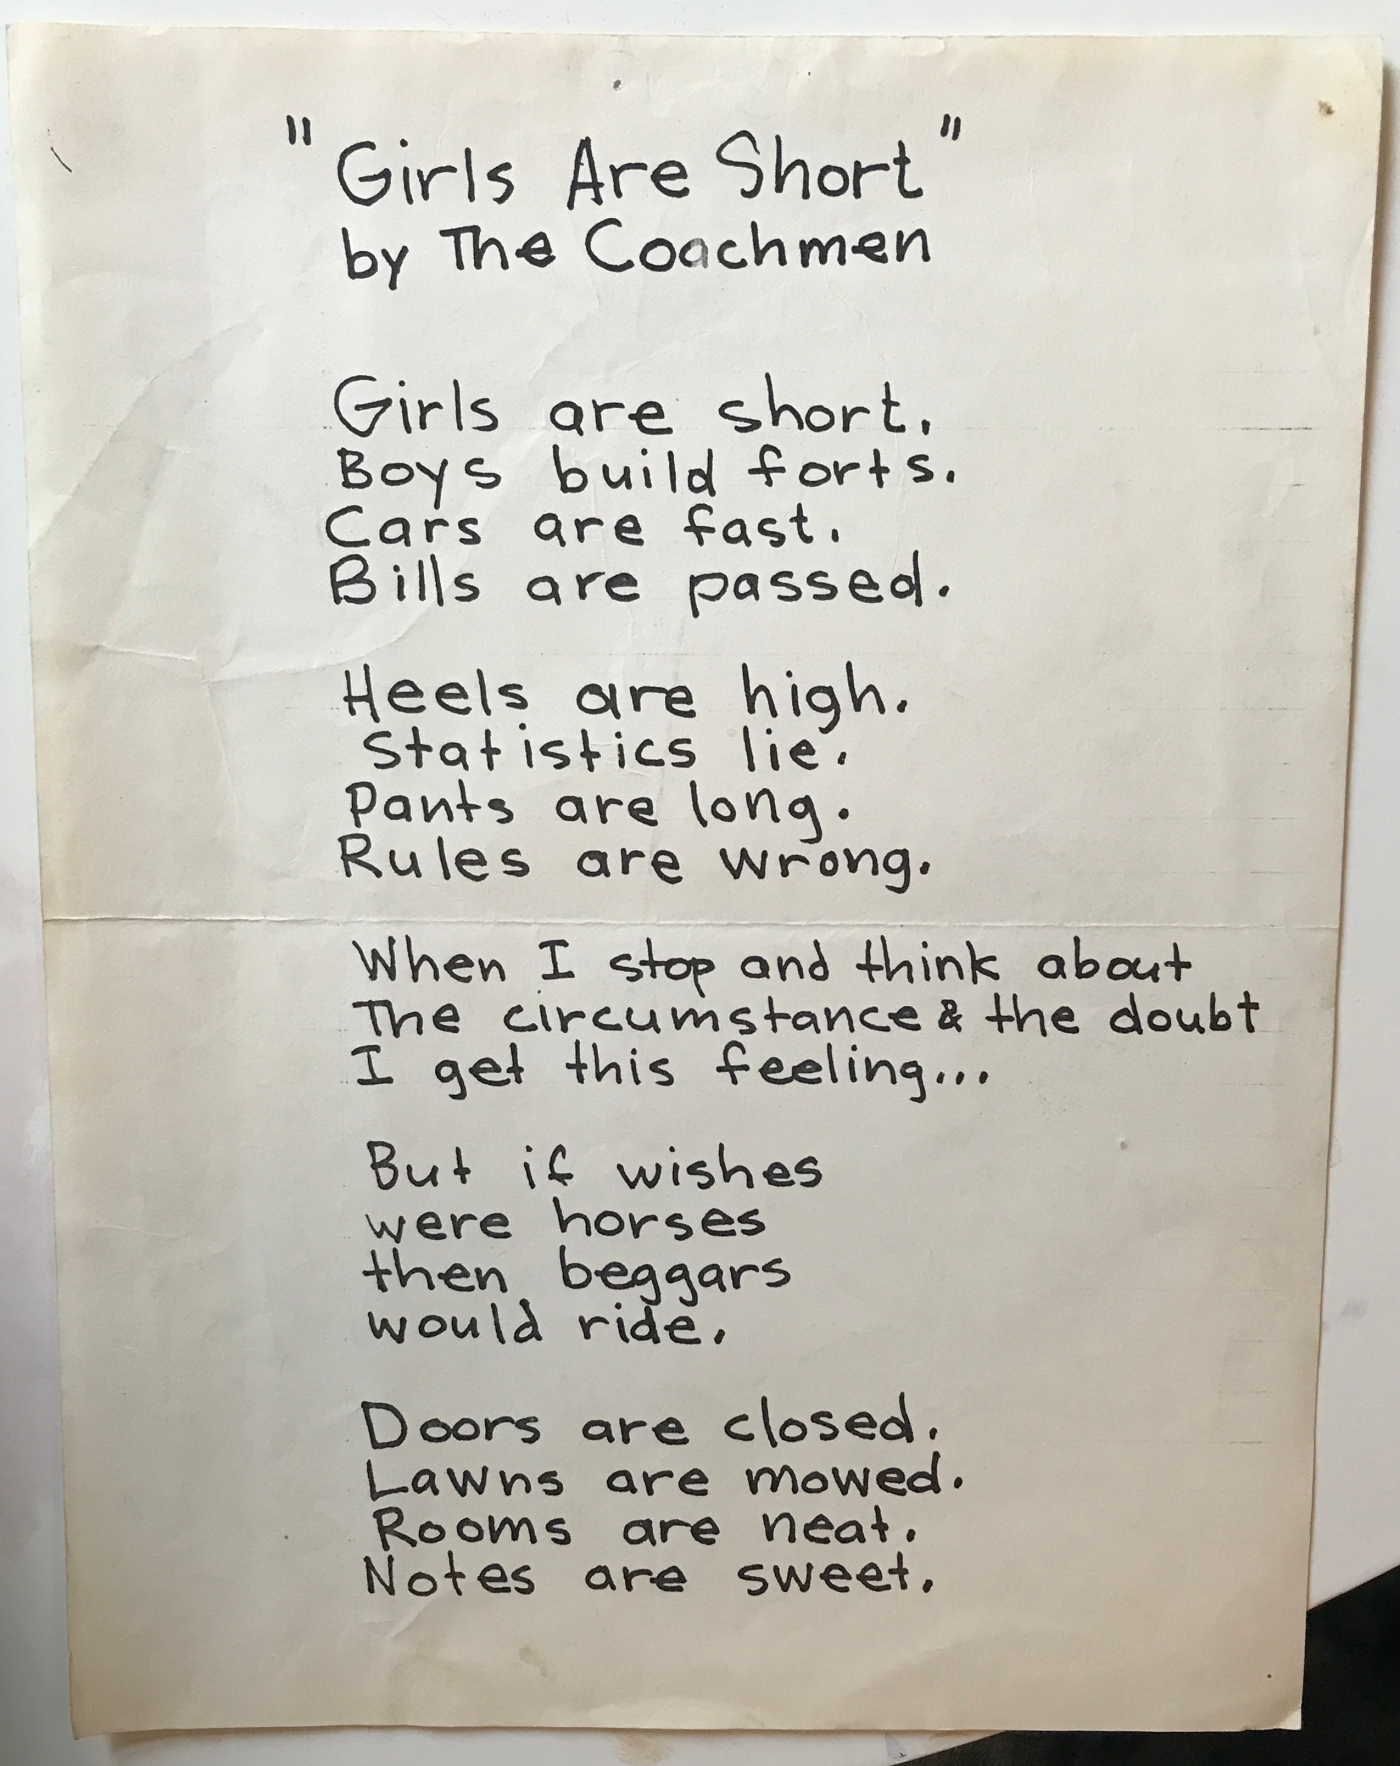 "Girls Are Short"
by The Coachmen
Girls are short.
Boys build forts.
Cars are fast.
Bills are passed.
Heels are high.
Statistics lie.
Pants are long.
Rules are wrong.
When I stop and think about
The circumstance & the doubt
I get this feeling...
But if wishes
were horses
then beggars
would ride.
Doors are closed.
Lawns are mowed.
Rooms are neat.
Notes are sweet.